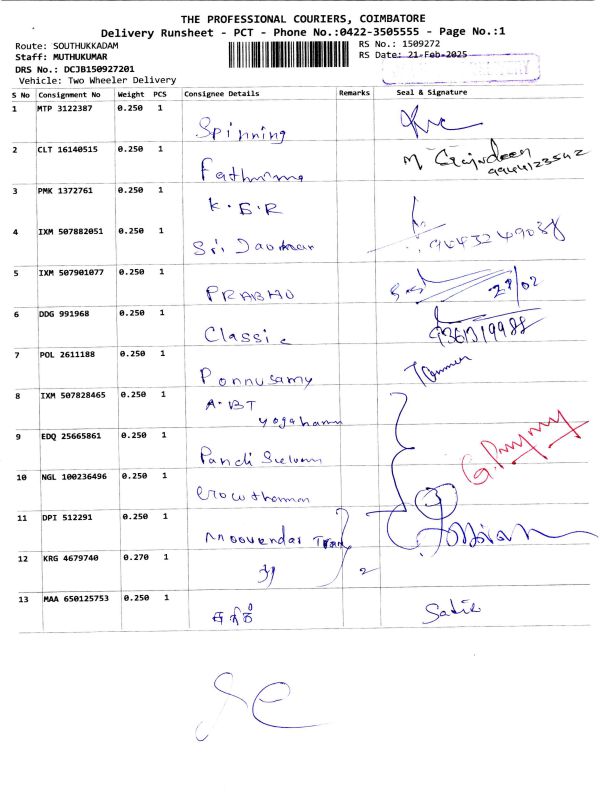 THE PROFESSIONAL COURIERS, COIMBATORE
Delivery Runsheet - PCT - Phone No.:0422-3505555 - Page No.:1
Route: SOUTHUKKADAM
RS No.: 1509272
Staff: MUTHUKUMAR
RS Date: 21-Feb-2025
DRS No.: DCJB150927201
Vehicle: Two Wheeler Delivery
S No Consignment No Weight PCS Consignee Details Remarks Seal & Signature
1 MTP 3122387 0.250 1 Spinning
2 CLT 16140515 0.250 1 Fathima
3 PMK 1372761 0.250 1 K.G.R
4 IXM 507882051 0.250 1 Sri 9443249038
5 IXM 507901077 0.250 1 PRABHU 21/02
6 DDG 991968 0.250 1 Classic
7 POL 2611188 0.250 1 Ponnusamy
8 IXM 507828465 0.250 1 A.BT
9 EDQ 25665861 0.250 1 Pandi Selvam
10 NGL 100236496 0.250 1 3
11 DPI 512291 0.250 1 Moovendar
12 KRG 4679740 0.270 1 2
13 MAA 650125753 0.250 1 Satis